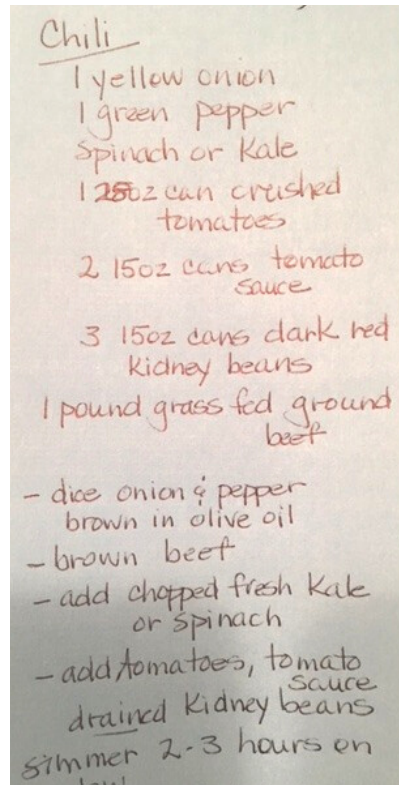 Chili
1 yellow onion
1 green pepper
Spinach or Kale
1 28oz can crushed
tomatoes
2 15oz cans tomato
sauce
3 15oz cans dark red
kidney beans
1 pound grass fed ground
beef
- dice onion & pepper
brown in olive oil
- brown beef
- add chopped fresh Kale
or Spinach
- add tomatoes, tomato
sauce
drained Kidney beans
simmer 2-3 hours on